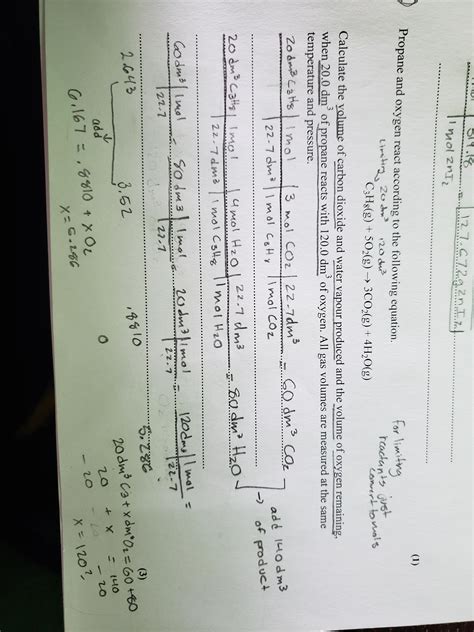 1 mol ZnI2
(1)
Propane and oxygen react according to the following equation.
limiting 20 dm³ 120 dm³
C3H8(g) + 5O2(g) → 3CO2(g) + 4H2O(g)
For limiting
reactants just
convert to mols
Calculate the volume of carbon dioxide and water vapour produced and the volume of oxygen remaining,
when 20.0 dm³ of propane reacts with 120.0 dm³ of oxygen. All gas volumes are measured at the same
temperature and pressure.
20 dm³ C3H8 | 1 mol | 3 mol CO2 | 22.7 dm³ = 60 dm³ CO2
22.7 dm³ | 1 mol C3H8 | 1 mol CO2
20 dm³ C3H8 | 1 mol | 4 mol H2O | 22.7 dm³ = 80 dm³ H2O
22.7 dm³ | 1 mol C3H8 | 1 mol H2O
→ add 140 dm3
of product
60 dm³ | 1 mol = 80 dm3 | 1 mol = 20 dm³ | 1 mol = 120 dm³ | 1 mol =
22.7 22.7 22.7 22.7
2.643 3.52 .8810 5.286
(3)
add
6.167 = .8810 + x O2
x = 5.286
20 dm³ C3 + x dm³ O2 = 60 + 80
20 + x = 140
- 20 - 20
x = 120?